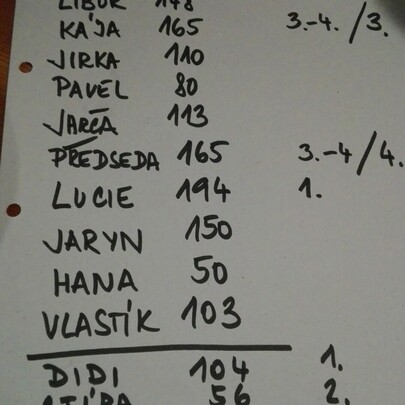 LIBOR 148
KÁJA 165 3.-4. / 3.
JIRKA 110
PAVEL 80
JARČA 113
PŘEDSEDA 165 3.-4 / 4.
LUCIE 194 1.
JARYN 150
HANA 50
VLASTÍK 103
DIDI 104 1.
56 2.